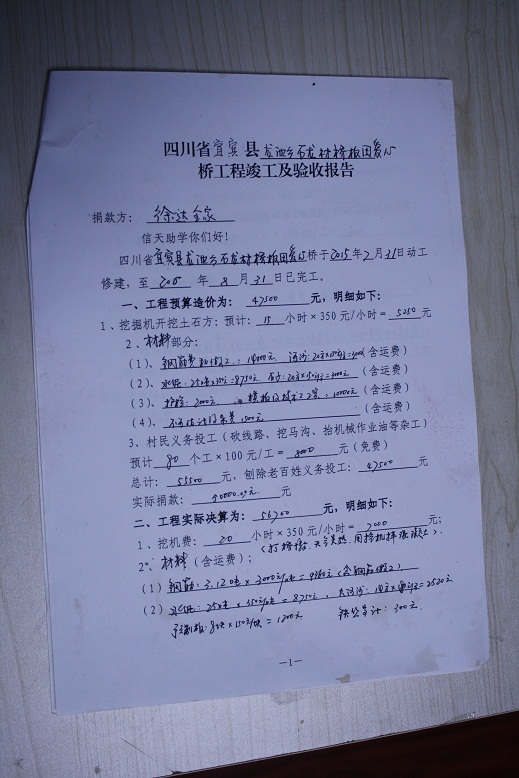 四川省宜宾县龙池乡石龙村桥板田爱心
桥工程竣工及验收报告
捐款方: 徐达全家
信天助学你们好!
四川省宜宾县龙池乡石龙村桥板田爱心桥于2015年7月31日动工
修建,至 2015 年 8 月 31 日已完工。
一、工程预算造价为: 47500 元,明细如下:
1、挖掘机开挖土石方:预计: 15 小时×350元/小时= 5250 元
2、材料部分:
(1)、钢筋 (含运费)
(2)、水泥:25吨×350元=8750元 (含运费)
(3)、2000元 模板及技术工资:10000元 (含运费)
(4)、1500元 (含运费)
3、村民义务投工(砍线路、挖马沟、抬机械作业油等杂工)
预计 80 个工×100元/工= 8000 元(免费)
总计: 55500 元,刨除老百姓义务投工: 47500 元
实际捐款: 40000.00元 元
二、工程实际决算为: 56700 元,明细如下:
1、挖机费: 20 小时×350元/小时= 7000 元;
(打桥墩,天气炎热,用挖机拌混凝土)
2、材料(含运费):
(1)钢筋:3.12吨×3000元/吨=9360元(含钢筋加工)
(2)水泥:25吨×350元/吨=8750元, =2520元
预制板:8块×150元/块=1200元 300元.
—1—